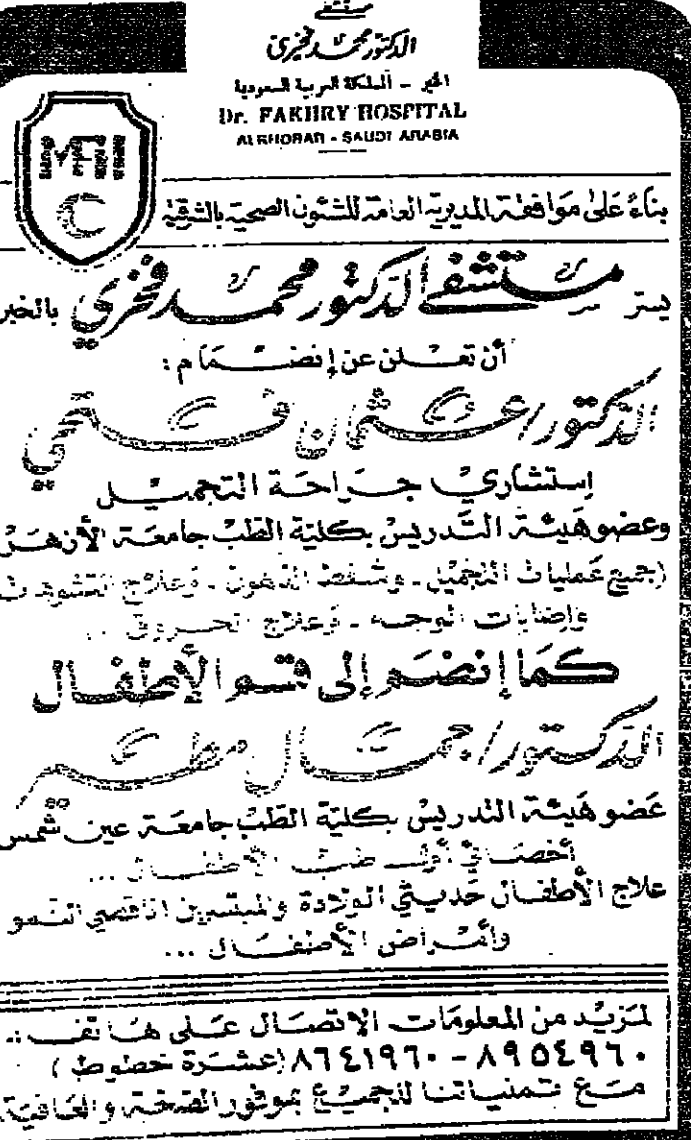 مستشفى
الدكتور محمد فخري
الخبر - المملكة العربية السعودية
Dr. FAKHRY HOSPITAL
ALKHOBAR - SAUDI ARABIA
بناءً على موافقة المديرية العامة للشئون الصحية بالشرقية
يسر مستشفى الدكتور محمد فخري بالخبر
أن تعلن عن إنضمام :
الدكتور/ عثمان فتحي
إستشاري جراحة التجميل
وعضو هيئة التدريس بكلية الطب جامعة الأزهر
(جميع عمليات التجميل - وشفط الدهون - وعلاج التشوهات
وإصابات الوجه - وعلاج الحروق ...
كما إنضم إلى قسم الأطفال
الدكتور/ جمال مطر
عضو هيئة التدريس بكلية الطب جامعة عين شمس
أخصائي أول طب الأطفال ...
علاج الأطفال حديثي الولادة والمبتسرين (ناقصي النمو
وأمراض الأطفال ...
لمزيد من المعلومات الإتصال على هاتف :
٨٩٥٤٩٦٠ - ٨٦٤١٩٦٠ (عشرة خطوط)
مع تمنياتنا للجميع بموفور الصحة والعافية